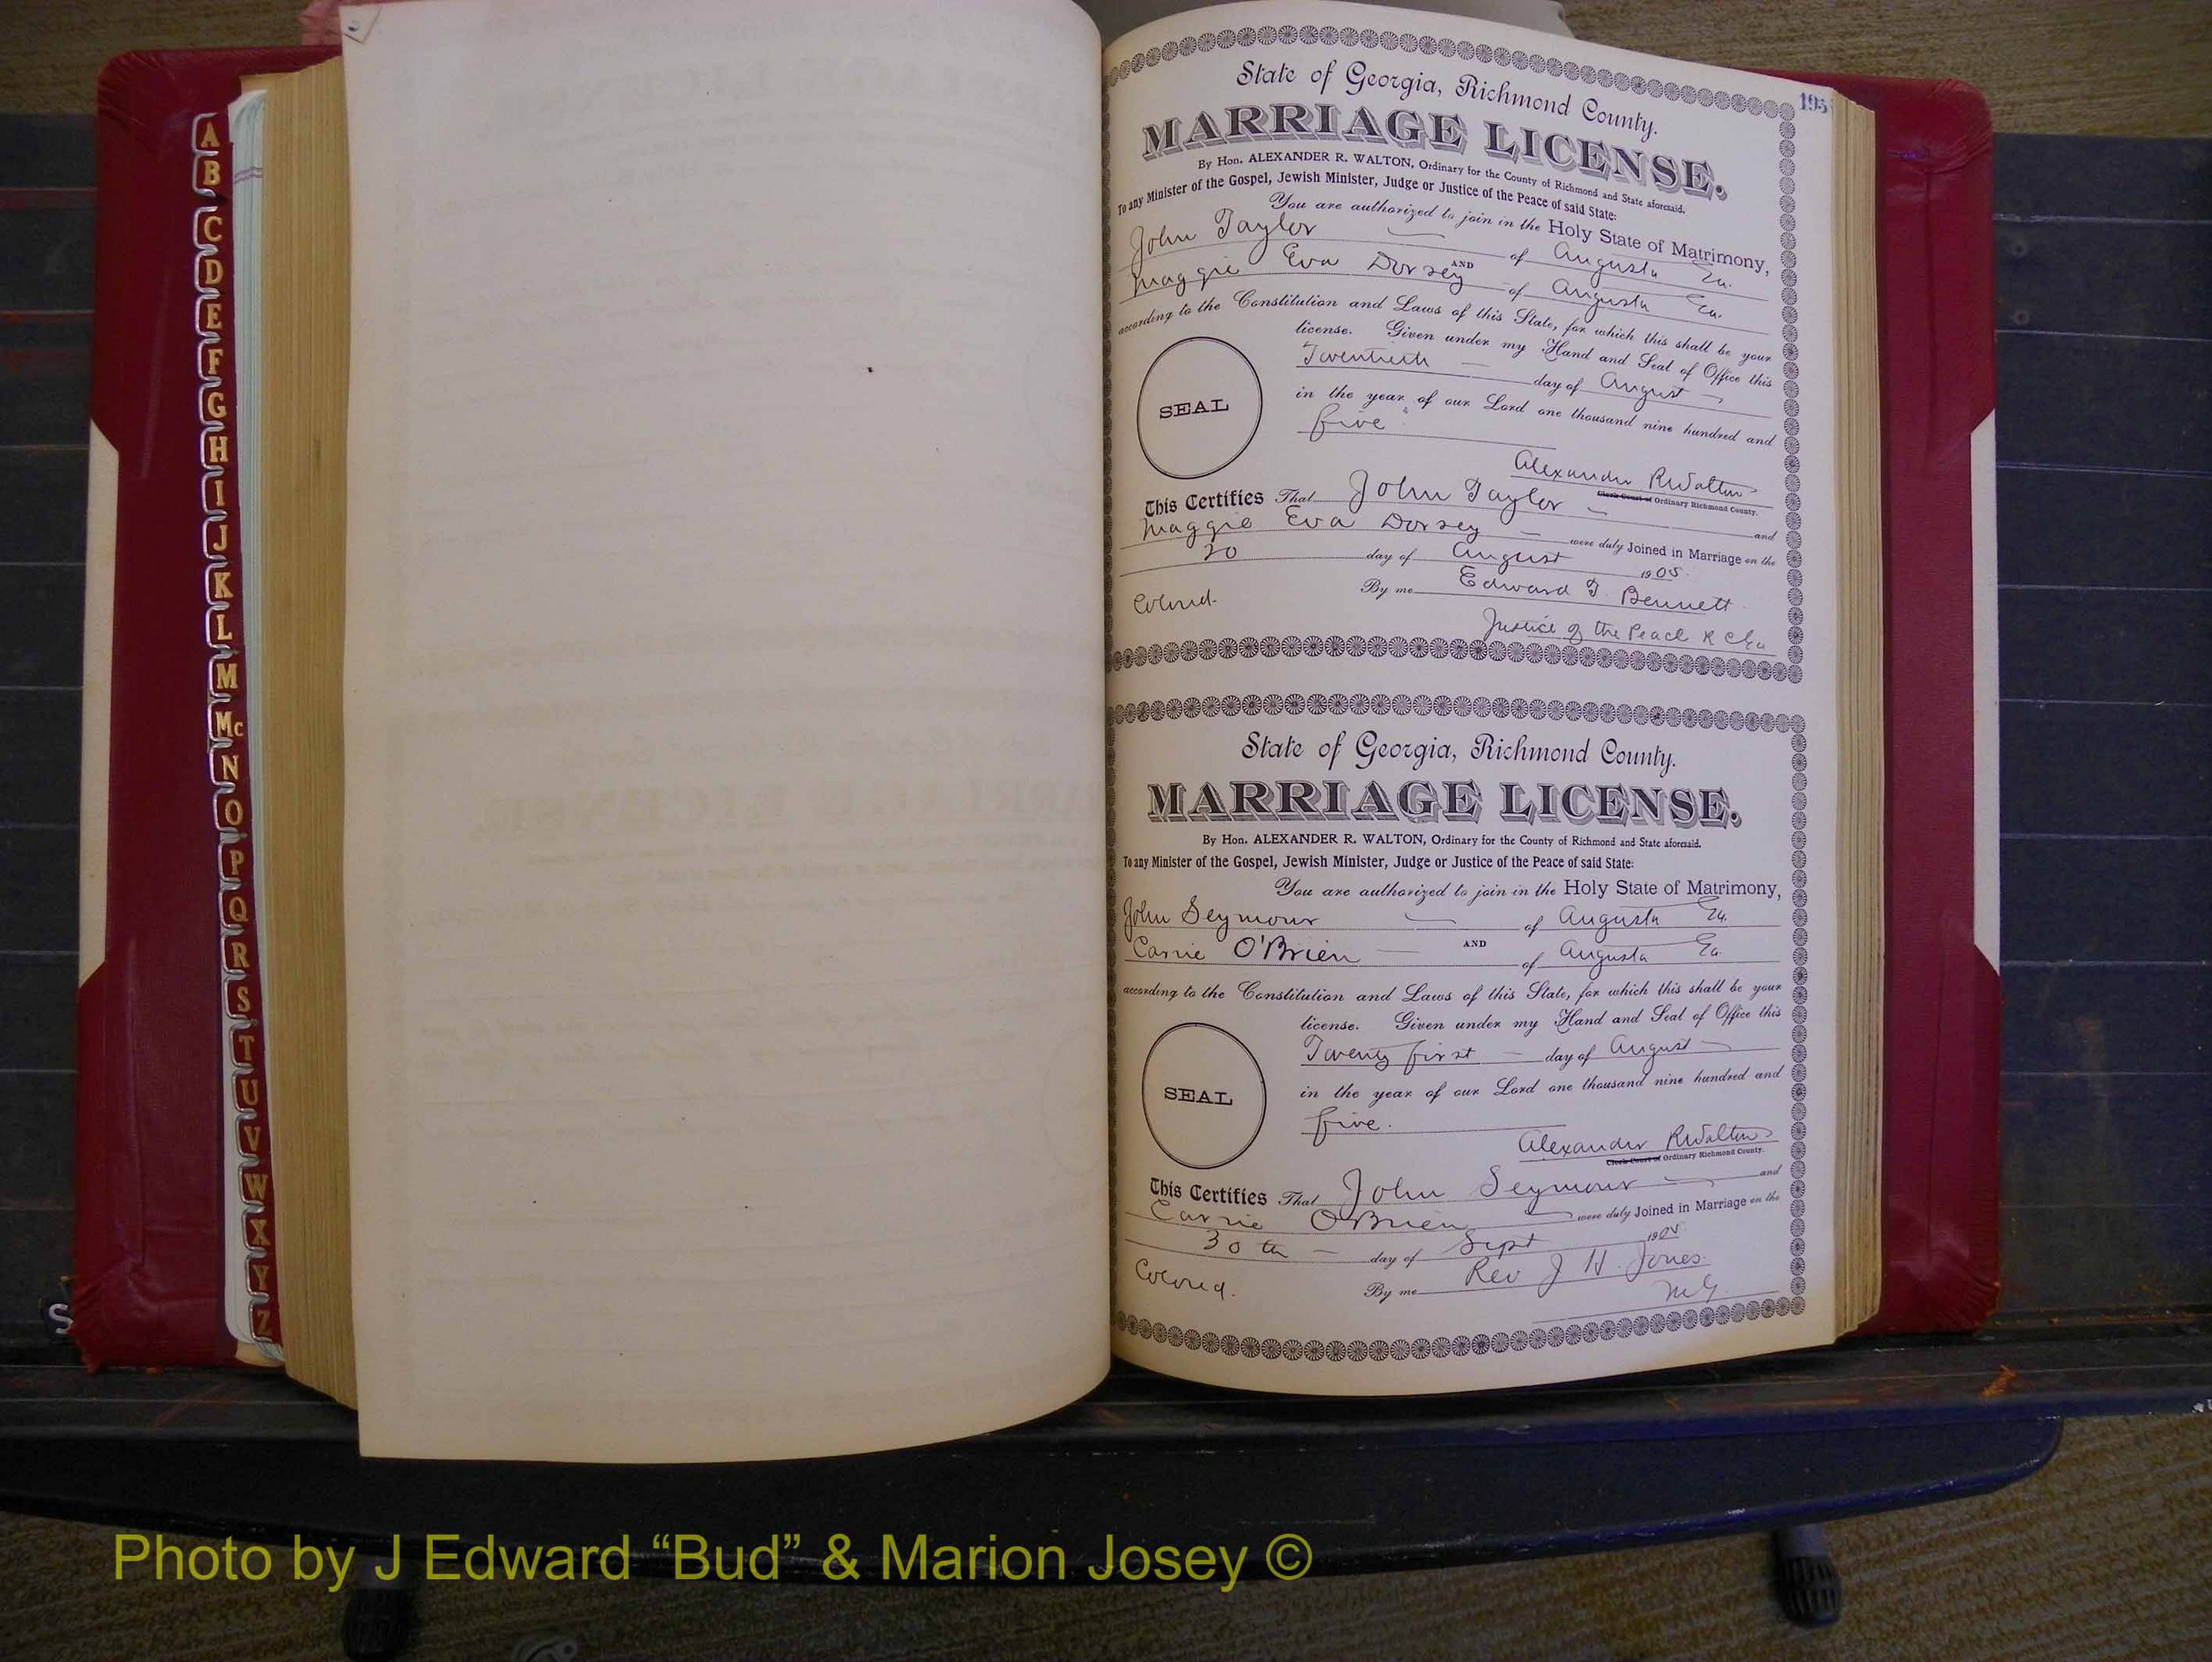 A
B
C
D
E
F
G
H
I
J
K
L
M
Mc
N
O
P
Q
R
S
T
U
V
W
X
Y
Z
195
State of Georgia, Richmond County.
MARRIAGE LICENSE.
By Hon. ALEXANDER R. WALTON, Ordinary for the County of Richmond and State aforesaid.
To any Minister of the Gospel, Jewish Minister, Judge or Justice of the Peace of said State:
You are authorized to join in the Holy State of Matrimony,
John Taylor of Augusta Ga.
AND
Maggie Eva Dorsey of Augusta Ga.
according to the Constitution and Laws of this State, for which this shall be your
license. Given under my Hand and Seal of Office this
Twentieth day of August
in the year of our Lord one thousand nine hundred and
five
SEAL
Alexander R Walton
Clerk Court of Ordinary Richmond County.
This Certifies That John Taylor and
Maggie Eva Dorsey were duly Joined in Marriage on the
20 day of August 1905.
Colored. By me Edward T. Bennett
Justice of the Peace R C Ga
State of Georgia, Richmond County.
MARRIAGE LICENSE.
By Hon. ALEXANDER R. WALTON, Ordinary for the County of Richmond and State aforesaid.
To any Minister of the Gospel, Jewish Minister, Judge or Justice of the Peace of said State:
You are authorized to join in the Holy State of Matrimony,
John Seymour of Augusta Ga.
AND
Carrie O'Brien of Augusta Ga.
according to the Constitution and Laws of this State, for which this shall be your
license. Given under my Hand and Seal of Office this
Twenty first day of August
in the year of our Lord one thousand nine hundred and
five.
SEAL
Alexander R Walton
Clerk Court of Ordinary Richmond County.
This Certifies That John Seymour and
Carrie O'Brien were duly Joined in Marriage on the
30th day of Sept 1905
Colored. By me Rev J H. Jones.
M G.
Photo by J Edward “Bud” & Marion Josey ©